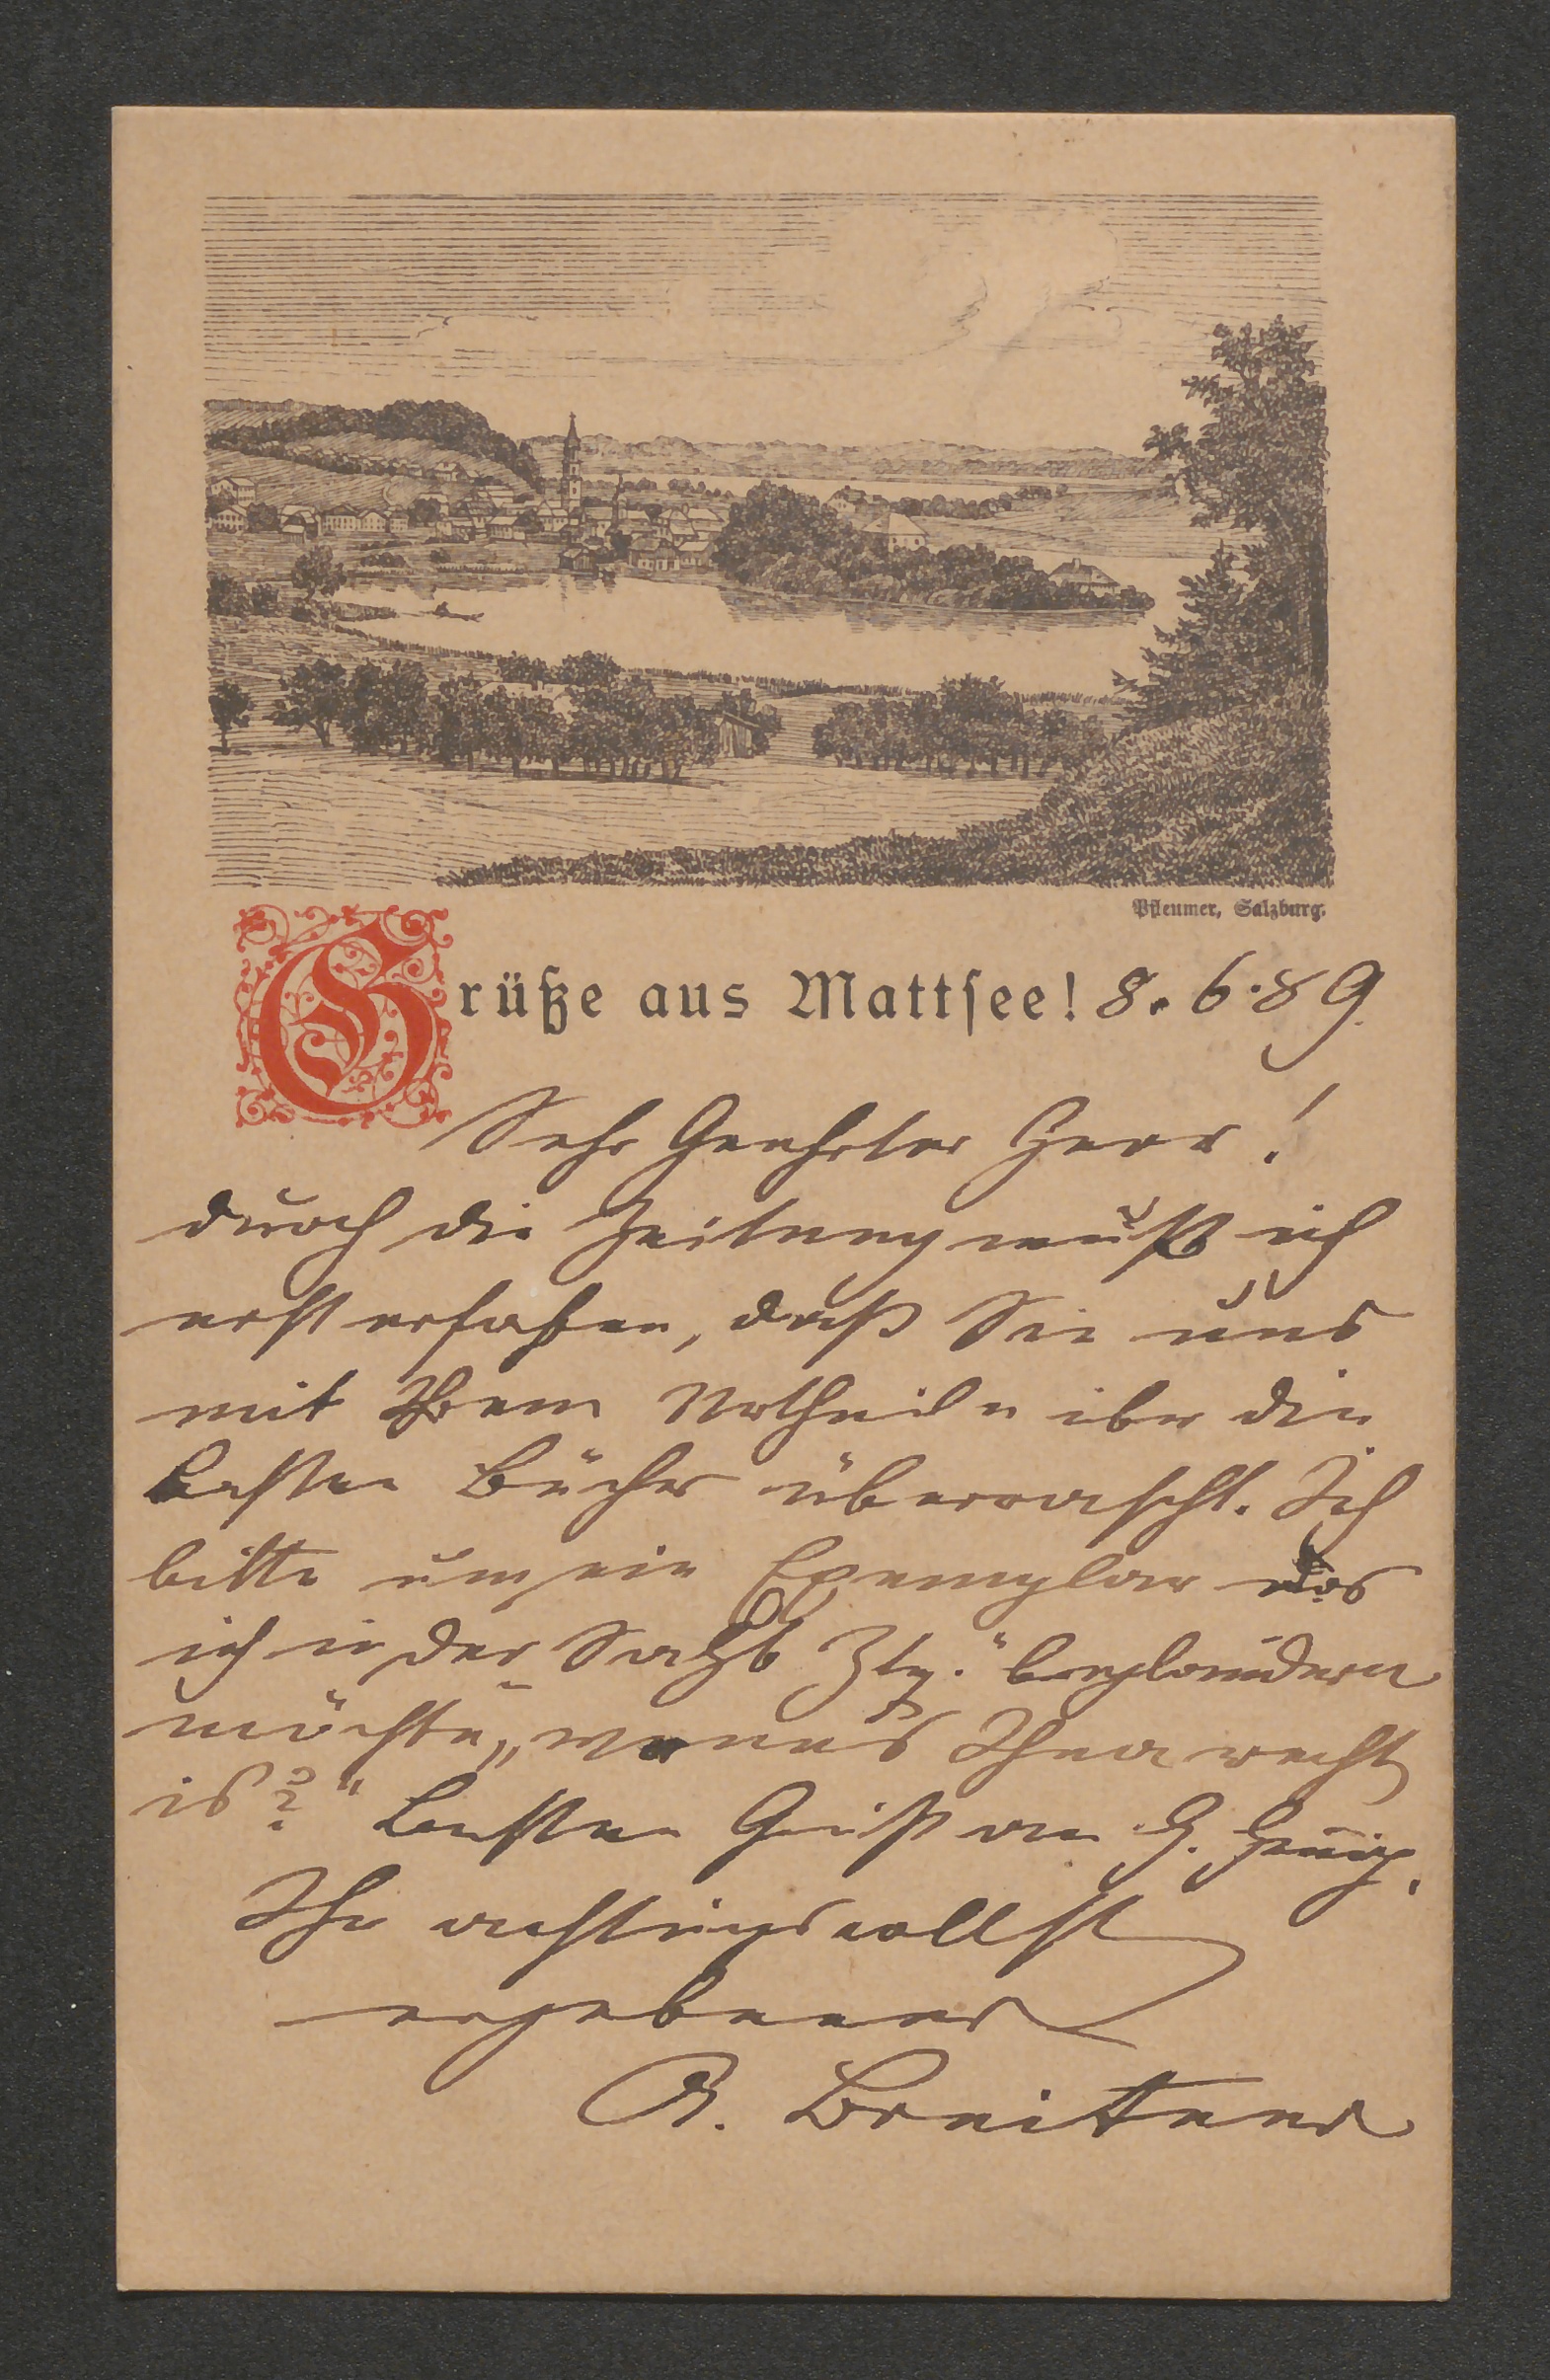 Pfleumer, Salzburg.
Grüße aus Mattsee! 8. 6. 89.
Sehr Geehrter Herr!
durch die Zeitung muß ich
erst erfahren, daß Sie uns
mit Ihrem Urtheile über die
besten Bücher überrascht. Ich
bitte um ein Exemplar das
ich in der „Salzb Ztg." beplaudern
möchte, „wenns Ihna recht
is?" Besten Gruß an H.
Ihr achtungsvollst
ergebener
A. Breitner